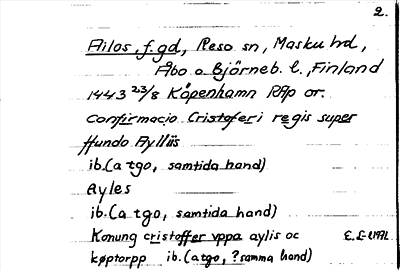 2.
Ailos, f. gd, Reso sn, Masku hd,
Åbo o. Björneb. l., Finland
1443 23/8 Köpenhamn RAp or.
confirmacio Cristoferi regis super
ffundo Aylliis
ib. (a tgo, samtida hand)
Ayles
ib. (a tgo, samtida hand)
Konung cristoffer vppa aylis oc
køptorpp ib. (atgo, ?samma hand)